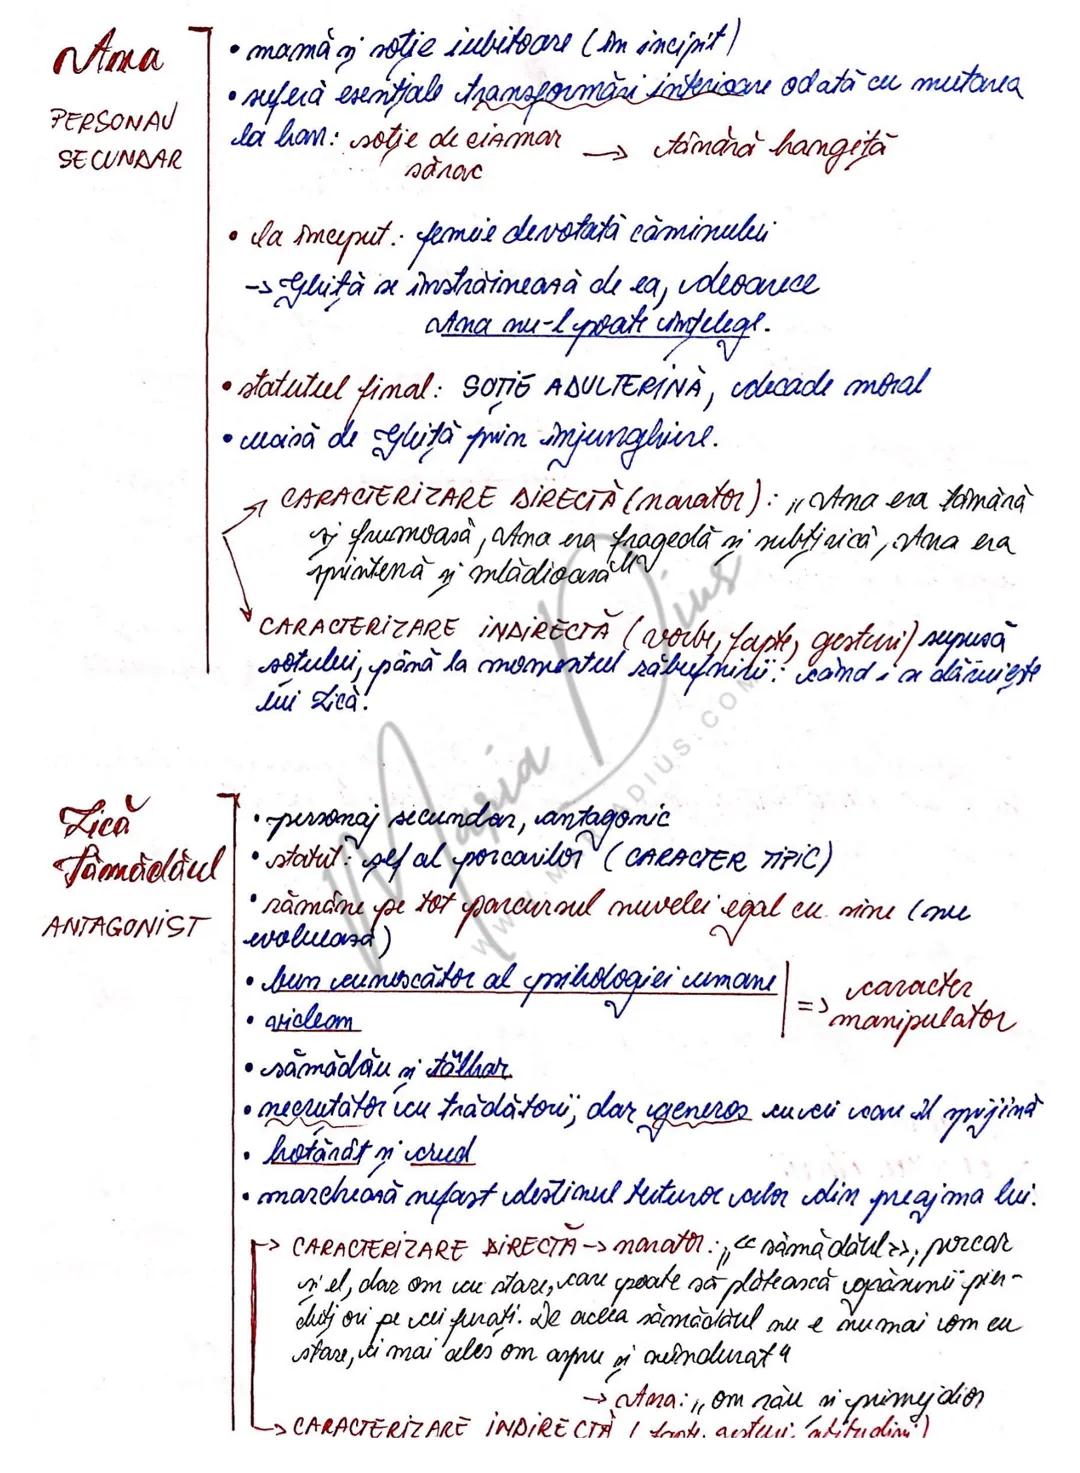 Ana
PERSONAJ
SECUNDAR
• mamă și soție iubitoare (în incipit)
• suferă esențiale transformări interioare odată cu mutarea
la han: soție de cizmar sărac → tânără hangiță
• la început: femeie devotată căminului
→ Ghiță se înstrăinează de ea, deoarece
Ana nu-l poate înțelege.
• statutul final: SOȚIE ADULTERINĂ, decade moral
• ucisă de Ghiță prin înjunghiere.
→ CARACTERIZARE DIRECTĂ (narator): „Ana era tânără
și frumoasă, Ana era fragedă și subțirică, Ana era
sprintenă și mlădioasă"
CARACTERIZARE INDIRECTĂ (vorbe, fapte, gesturi) supusă
soțului, până la momentul răbufnirii: când i se dăruiește
lui Lică.
Lică
Sămădăul
ANTAGONIST
• personaj secundar, antagonic
• statut: șef al porcarilor (CARACTER TIPIC)
• rămâne pe tot parcursul nuvelei egal cu sine (nu
evoluează)
• bun cunoscător al psihologiei umane
• viclean
=> caracter
manipulator
• sămădău și tâlhar
• necruțător cu trădătorii, dar generos cu cei care îl sprijină
• hotărât și crud
• marchează nefast destinul tuturor celor din preajma lui.
→ CARACTERIZARE DIRECTĂ → narator: „<< sămădăul >>, porcar
și el, dar om cu stare, care poate să plătească grăsunii pier-
duți ori pe cei furați. De aceea sămădăul nu e numai om cu
stare, ci mai ales om aspru și neîndurat"
→ Ana: „om rău și primejdios
→ CARACTERIZARE INDIRECTĂ (fapte, gesturi, atitudini)
Maria Dius
WWW.MARIADIUS.COM